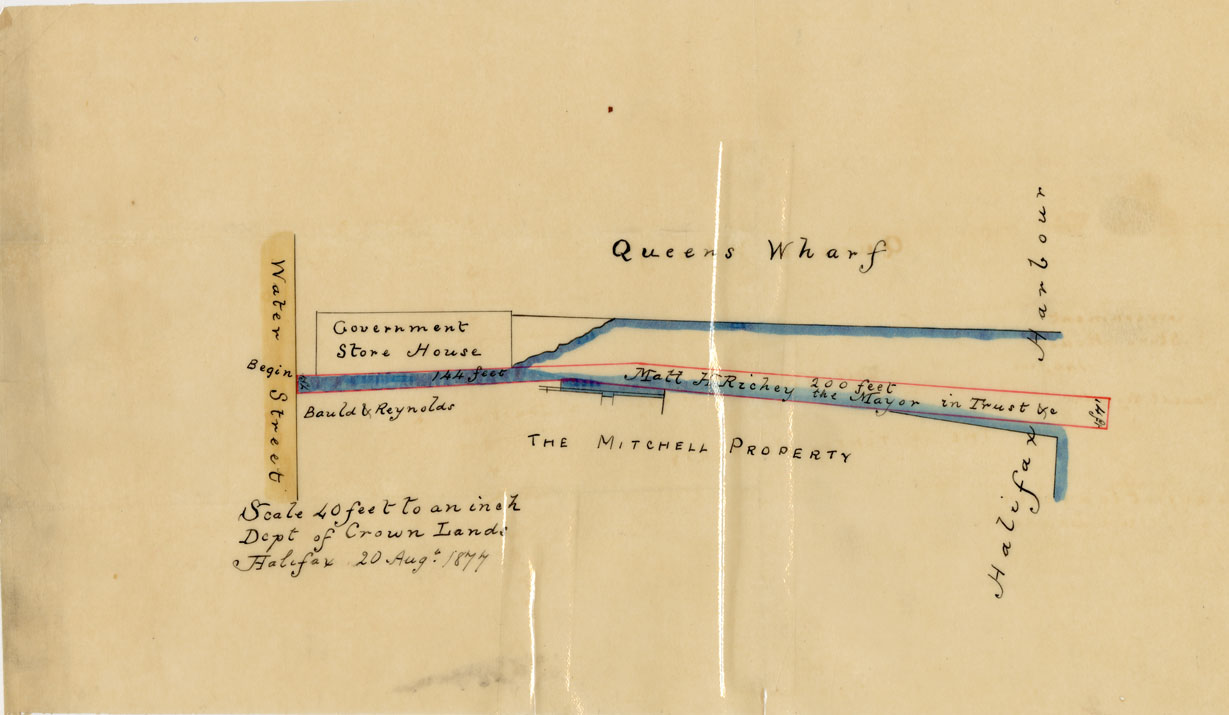 Queens Wharf
Halifax Harbour
Water Street
Government
Store House
Begin
144 feet
Matt H Richey 200 feet
the Mayor in Trust &c
Bauld & Reynolds
THE MITCHELL PROPERTY
Scale 40 feet to an inch
Dept of Crown Lands
Halifax 20 Augt. 1877